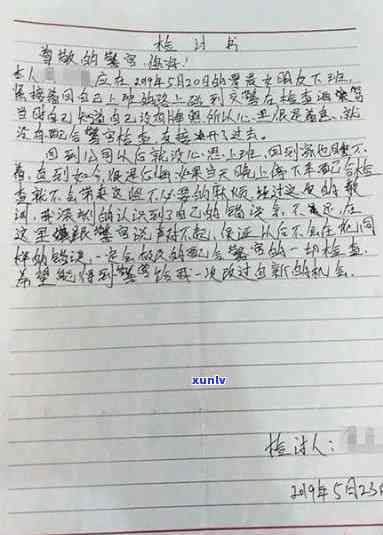 检讨书
尊敬的警官，你好！
本人 应在2019年5月20日的 送女朋友下班
接着回自己上班的路上碰到交警在检查酒驾
当时自己知道自己没有 所以心里很是着急，就
没有配合警官检查，直接 过去。
回到公司以后就没心思上班，回到家也睡不
着，直到如今，很是后悔如果当天晚上停下来配合检
查就不会带来这些不必要的麻烦，经过这次的教
训，我深刻的认识到了自己的错误 不 ，在
这里 跟警官说声对不起，保证以后不会在犯同
样的错误，一定会 的配合警官的一切检查，
希望能得到警官给我一次改过自新的机会。
xunlv
检讨人：
2019年5月23日